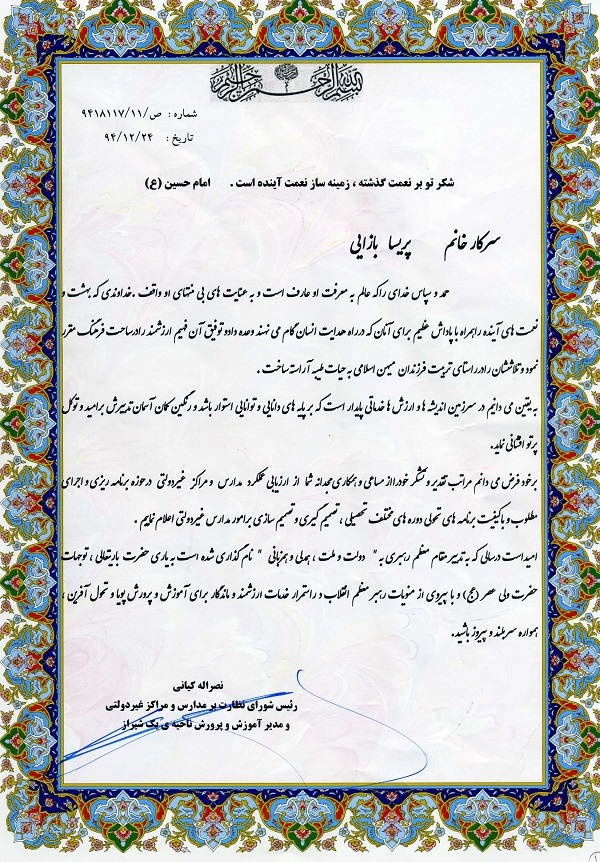 بسم الله الرحمن الرحیم
شماره : ص/۹۴۱۸۱۱۷/۱۱
تاریخ : ۹۴/۱۲/۲۴
شکر تو بر نعمت گذشته ، زمینه ساز نعمت آینده است . امام حسین (ع)
سرکار خانم پریسا بازایی
حمد و سپاس خدای را که عالم به معرفت او عارف است و به عنایت های بی منتهای او واقف . خداوندی که بهشت و
نعمت های آینده را همراه با پاداش عظیم برای آنان که در راه هدایت انسان گام می نهند وعده داد و توفیق آن فهیم ارزشمند را در ساحت فرهنگ مقرر
نمود و تلاششان را در راستای تربیت فرزندان میهن اسلامی به حیات طیبه آراسته ساخت .
به یقین می دانیم در سرزمین اندیشه ها و ارزش ها خدماتی پایدار است که بر پله های دانایی و توانایی استوار باشد و رنگین کمان آسمان تدبیرش بر امید و توکل
پرتو افشانی نماید.
بر خود فرض می دانم مراتب تقدیر و تشکر خود را از مساعی و همکاری مجدانه شما از ارزیابی عملکرد مدارس و مراکز غیردولتی در حوزه برنامه ریزی و اجرای
مطلوب و با کیفیت برنامه های تحولی دوره های مختلف تحصیلی ، تصمیم گیری و تصمیم سازی بر امور مدارس غیردولتی اعلام نمایم .
امید است در سالی که به تدبیر مقام معظم رهبری به " دولت و ملت ، همدلی و همزبانی " نام گذاری شده است به یاری حضرت باریتعالی ، توجهات
حضرت ولی عصر (عج) و با پیروی از منویات رهبر معظم انقلاب در استمرار خدمات ارزشمند و ماندگار برای آموزش و پرورش پویا و تحول آفرین ،
همواره سربلند و پیروز باشید.
نصراله کیانی
رئیس شورای نظارت بر مدارس و مراکز غیردولتی
و مدیر آموزش و پرورش ناحیه ی یک شیراز